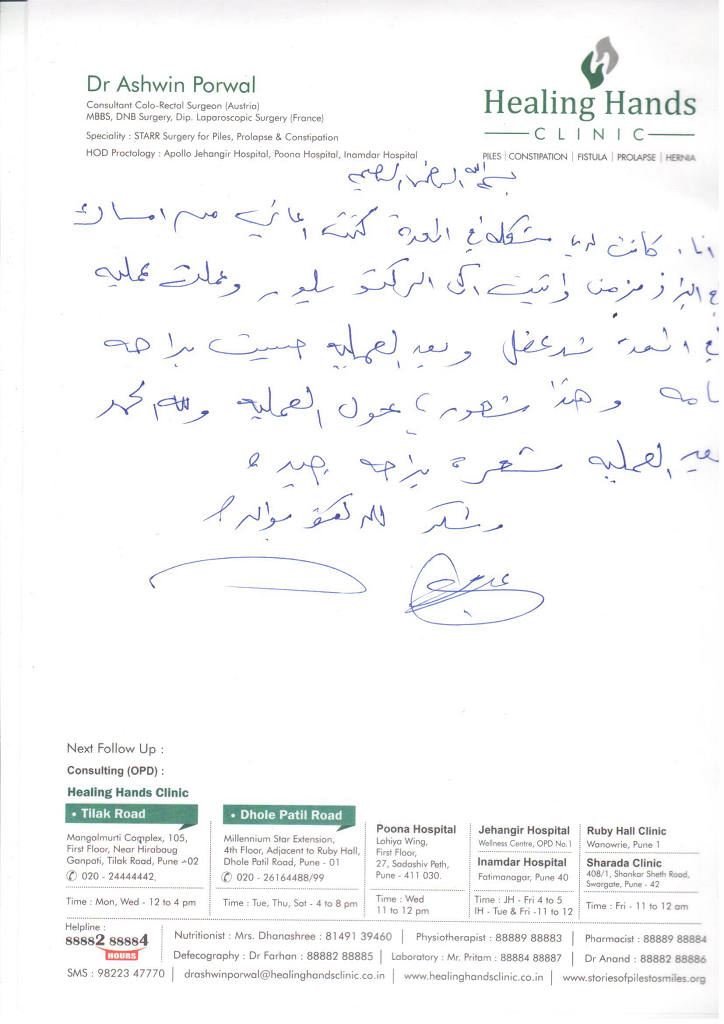 Dr Ashwin Porwal
Consultant Colo-Rectal Surgeon (Austria)
MBBS, DNB Surgery, Dip. Laparoscopic Surgery (France)
Speciality : STARR Surgery for Piles, Prolapse & Constipation
HOD Proctology : Apollo Jehangir Hospital, Poona Hospital, Inamdar Hospital
Healing Hands
CLINIC
PILES | CONSTIPATION | FISTULA | PROLAPSE | HERNIA
بسم الله الرحمن الرحيم
انا كانت لدي مشكله في المعدة كنت اعاني من امساك
مزمن واتيت الى وعملت عمليه
في المعدة وبعد العمليه حسيت براحه
وهذا العمليه ولله الحمد
العمليه شعرة براحه جيده
وشكر
Next Follow Up :
Consulting (OPD) :
Healing Hands Clinic
• Tilak Road
Mangalmurti Complex, 105,
First Floor, Near Hirabaug
Ganpati, Tilak Road, Pune -02
020 - 24444442,
Time : Mon, Wed - 12 to 4 pm
• Dhole Patil Road
Millennium Star Extension,
4th Floor, Adjacent to Ruby Hall,
Dhole Patil Road, Pune - 01
020 - 26164488/99
Time : Tue, Thu, Sat - 4 to 8 pm
Poona Hospital
Lohiya Wing,
First Floor,
27, Sadashiv Peth,
Pune - 411 030.
Time : Wed
11 to 12 pm
Jehangir Hospital
Wellness Centre, OPD No.1
Inamdar Hospital
Fatimanagar, Pune 40
Time : JH - Fri 4 to 5
IH - Tue & Fri -11 to 12
Ruby Hall Clinic
Wanowrie, Pune 1
Sharada Clinic
408/1, Shankar Sheth Road,
Swargate, Pune - 42
Time : Fri - 11 to 12 am
Helpline :
88882 88884
HOURS
SMS : 98223 47770
Nutritionist : Mrs. Dhanashree : 81491 39460 | Physiotherapist : 88889 88883 | Pharmacist : 88889 88884
Defecography : Dr Farhan : 88882 88885 | Laboratory : Mr. Pritam : 88884 88887 | Dr Anand : 88882 88886
drashwinporwal@healinghandsclinic.co.in | www.healinghandsclinic.co.in | www.storiesofpilestosmiles.org